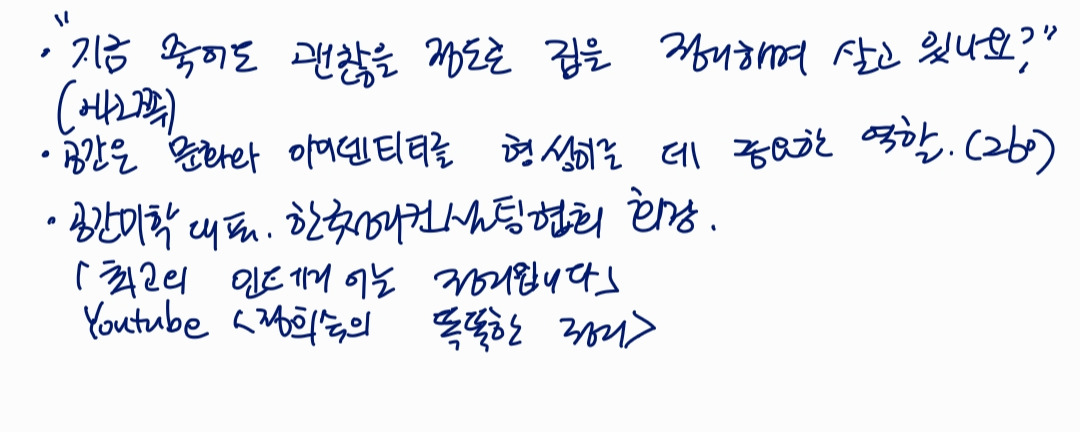 · "지금 죽어도 괜찮을 정도로 집을 정리하며 살고 있나요?"
· 공간은 문화와 아이덴티티를 형성하는 데 중요한 역할. (260)
· 공간미학 대표. 한국정리컨설팅협회 회장.
「최고의 인테리어는 정리입니다」
Youtube <정희숙의 똑똑한 정리>